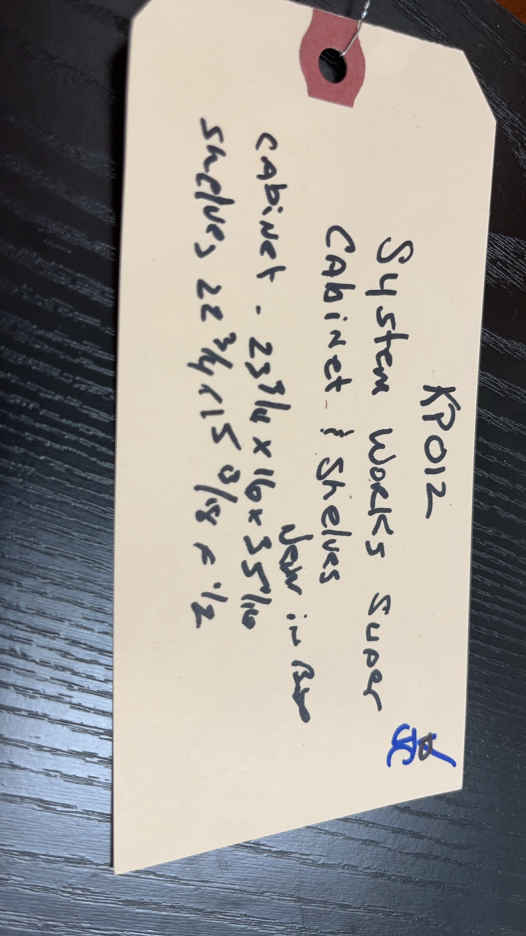 KP012
System Works Super
Cabinet & Shelves
New in Box
Cabinet - 23 3/4 x 16 x 35 1/16
Shelves 22 3/4 x 15 3/8 x 1/2